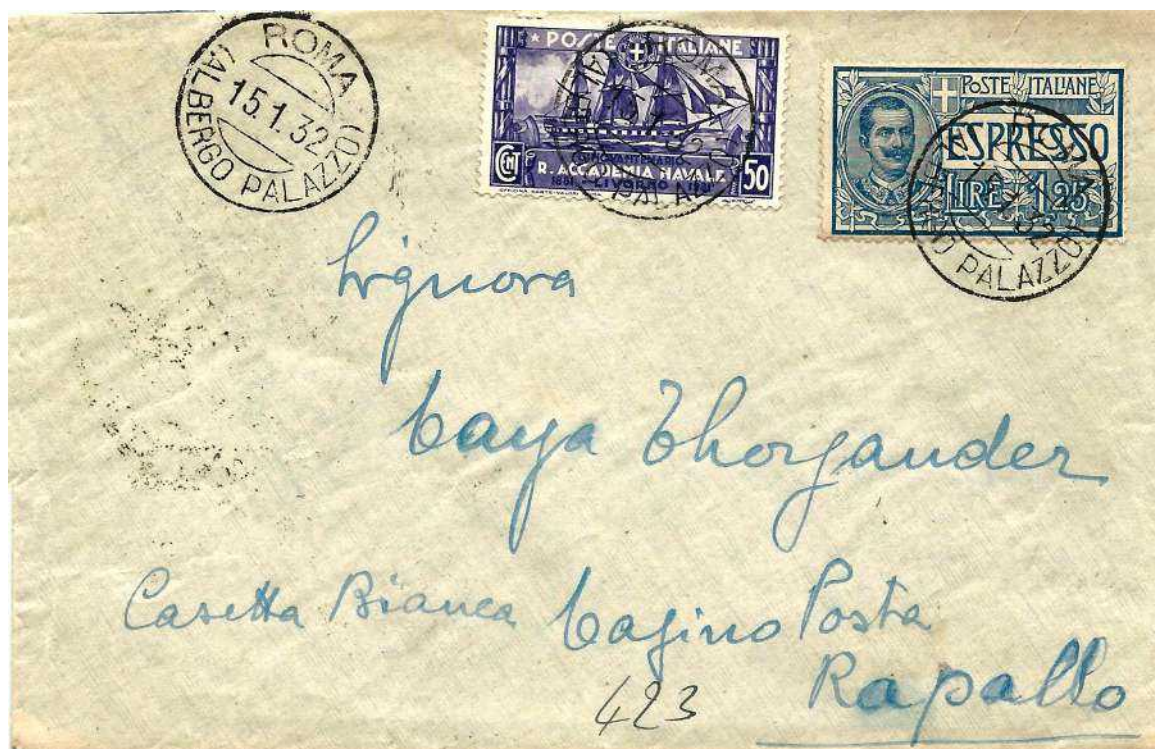 ROMA
15.1.32
(ALBERGO PALAZZO)
POSTE ITALIANE
CINQVANTENARIO
R. ACCADEMIA NAVALE
1881 - LIVORNO - 1931
CENT 50
POSTE ITALIANE
ESPRESSO
LIRE 1,25
ROMA
PALAZZO)
ROMA
PALAZZO)
Signora
Caya Thorgander
Casetta Bianca Cagino Posta
Rapallo
423